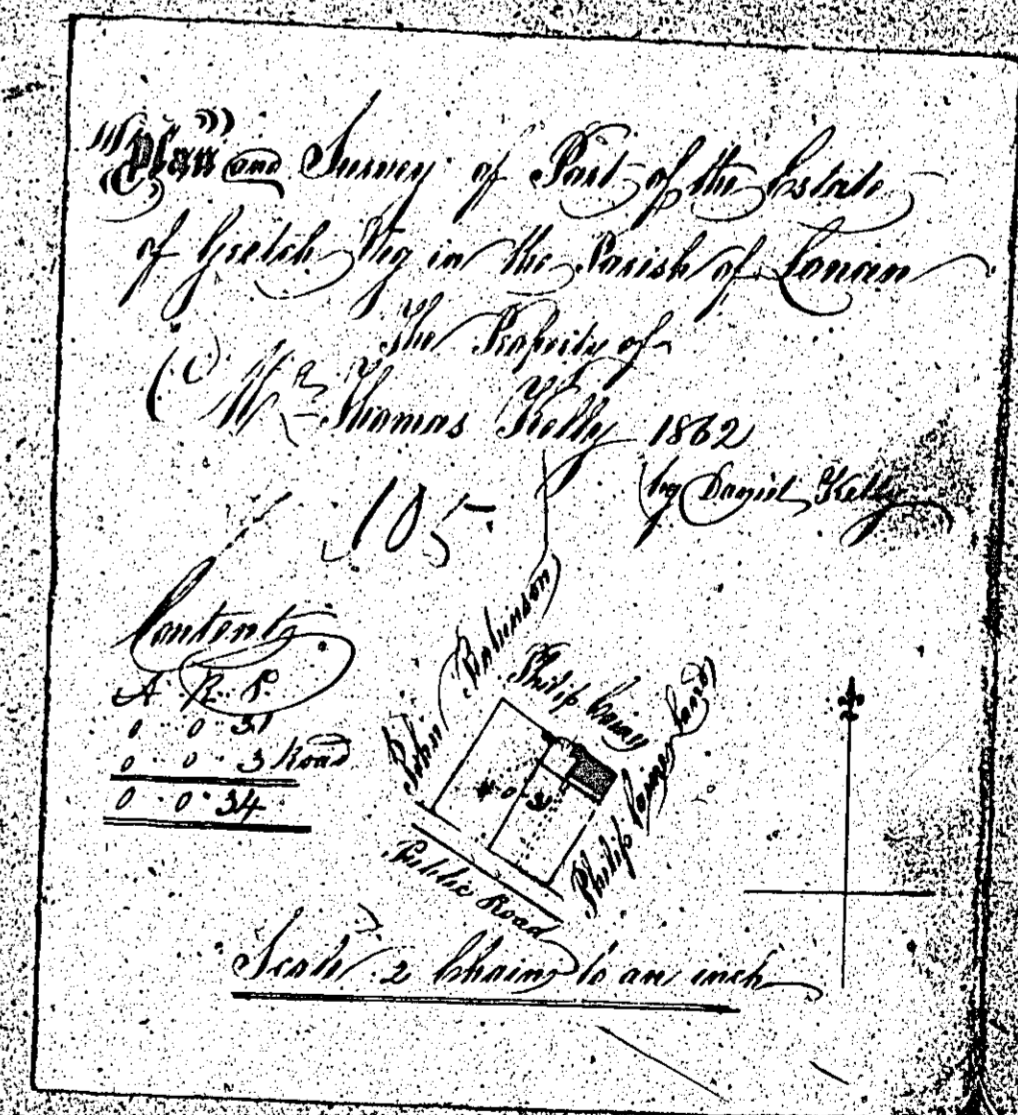 Plan and Survey of Part of the Estate
of Gretch Veg in the Parish of Lonan
The Property of
Mr Thomas Kelly 1862
by Daniel Kelly
105
Contents
A. R. P.
0 0 31
0 0 3 Road
0 0 34
John Robinson
Philip
Philip Land
0 31
Public Road
Scale 2 Chains to an inch